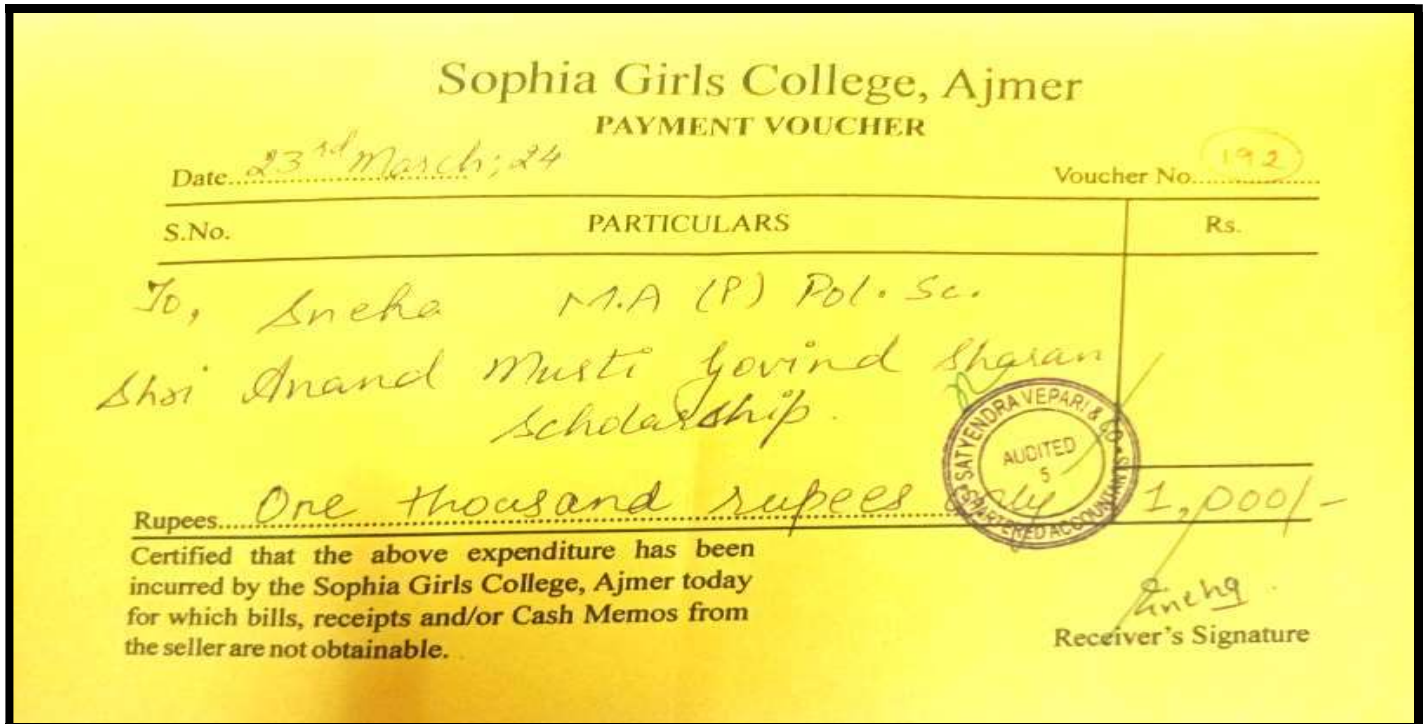 Sophia Girls College, Ajmer
PAYMENT VOUCHER
Date..23rd March; 24
Voucher No. 192
S.No. PARTICULARS Rs.
To, Sneha M.A (P) Pol. Sc.
Shri Anand Murti Govind Sharan
Scholarship.
SATYENDRA VEPARI & CO. CHARTERED ACCOUNTANTS
AUDITED
5
Rupees...One thousand rupees only 1,000/-
Certified that the above expenditure has been
incurred by the Sophia Girls College, Ajmer today
for which bills, receipts and/or Cash Memos from
the seller are not obtainable.
Sneha
Receiver's Signature